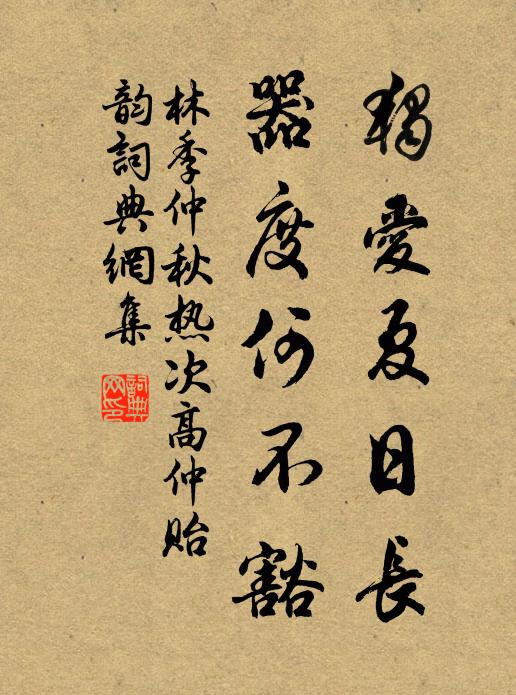 獨愛夏日長
器度何不豁
林季仲秋热次高仲貽
韵詞典網集
詞典網印